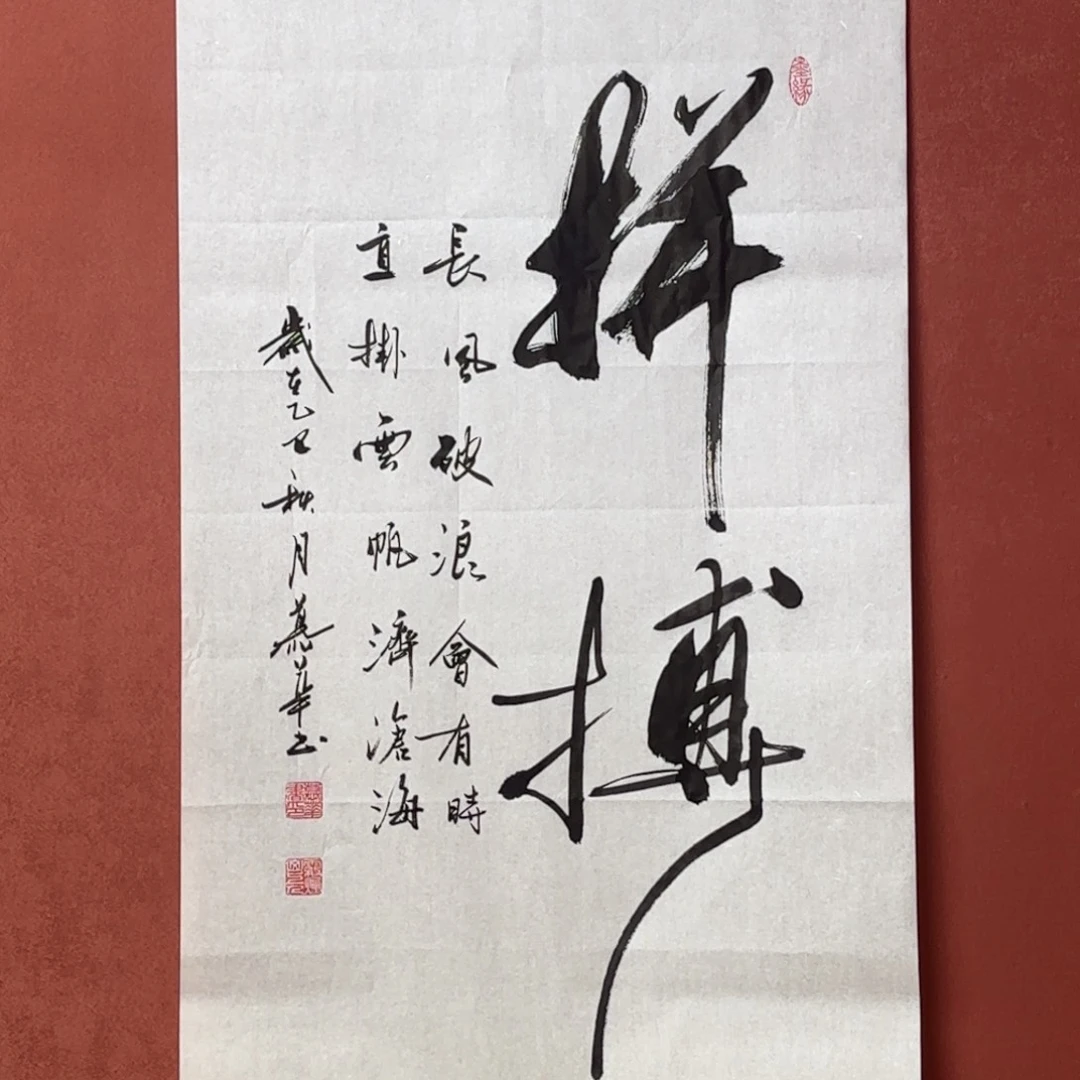 拼搏
長風破浪會有時
直掛雲帆濟滄海
歲在乙丑秋月慕華书
墨缘